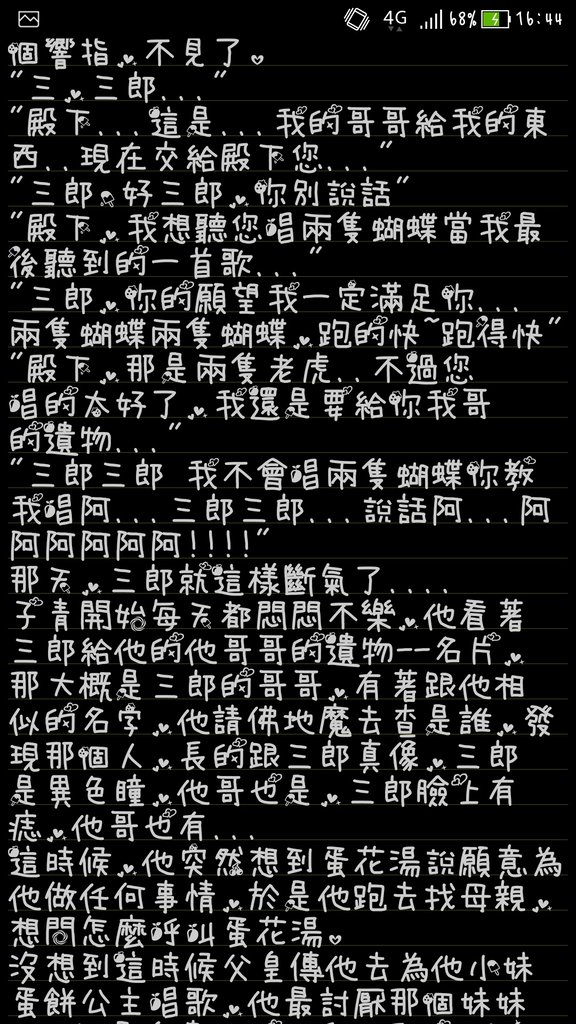 4G 68% 16:44
個響指,不見了。
"三,三郎..."
"殿下...這是...我的哥哥給我的東
西..現在交給殿下您..."
"三郎。好三郎,你別說話"
"殿下,我想聽您唱兩隻蝴蝶當我最
後聽到的一首歌..."
"三郎,你的願望我一定滿足你...
兩隻蝴蝶兩隻蝴蝶,跑的快~跑得快"
"殿下,那是兩隻老虎..不過您
唱的太好了,我還是要給你我哥
的遺物..."
"三郎三郎 我不會唱兩隻蝴蝶你教
我唱阿...三郎三郎...說話阿...阿
阿阿阿阿阿!!!!"
那天,三郎就這樣斷氣了....
子青開始每天都悶悶不樂,他看著
三郎給他的他哥哥的遺物--名片,
那大概是三郎的哥哥,有著跟他相
似的名字,他請佛地魔去查是誰,發
現那個人,長的跟三郎真像,三郎
是異色瞳,他哥也是,三郎臉上有
痣,他哥也有...
這時候,他突然想到蛋花湯說願意為
他做任何事情,於是他跑去找母親,
想問怎麼呼叫蛋花湯。
沒想到這時候父皇傳他去為他小妹
蛋餅公主唱歌,他最討厭那個妹妹